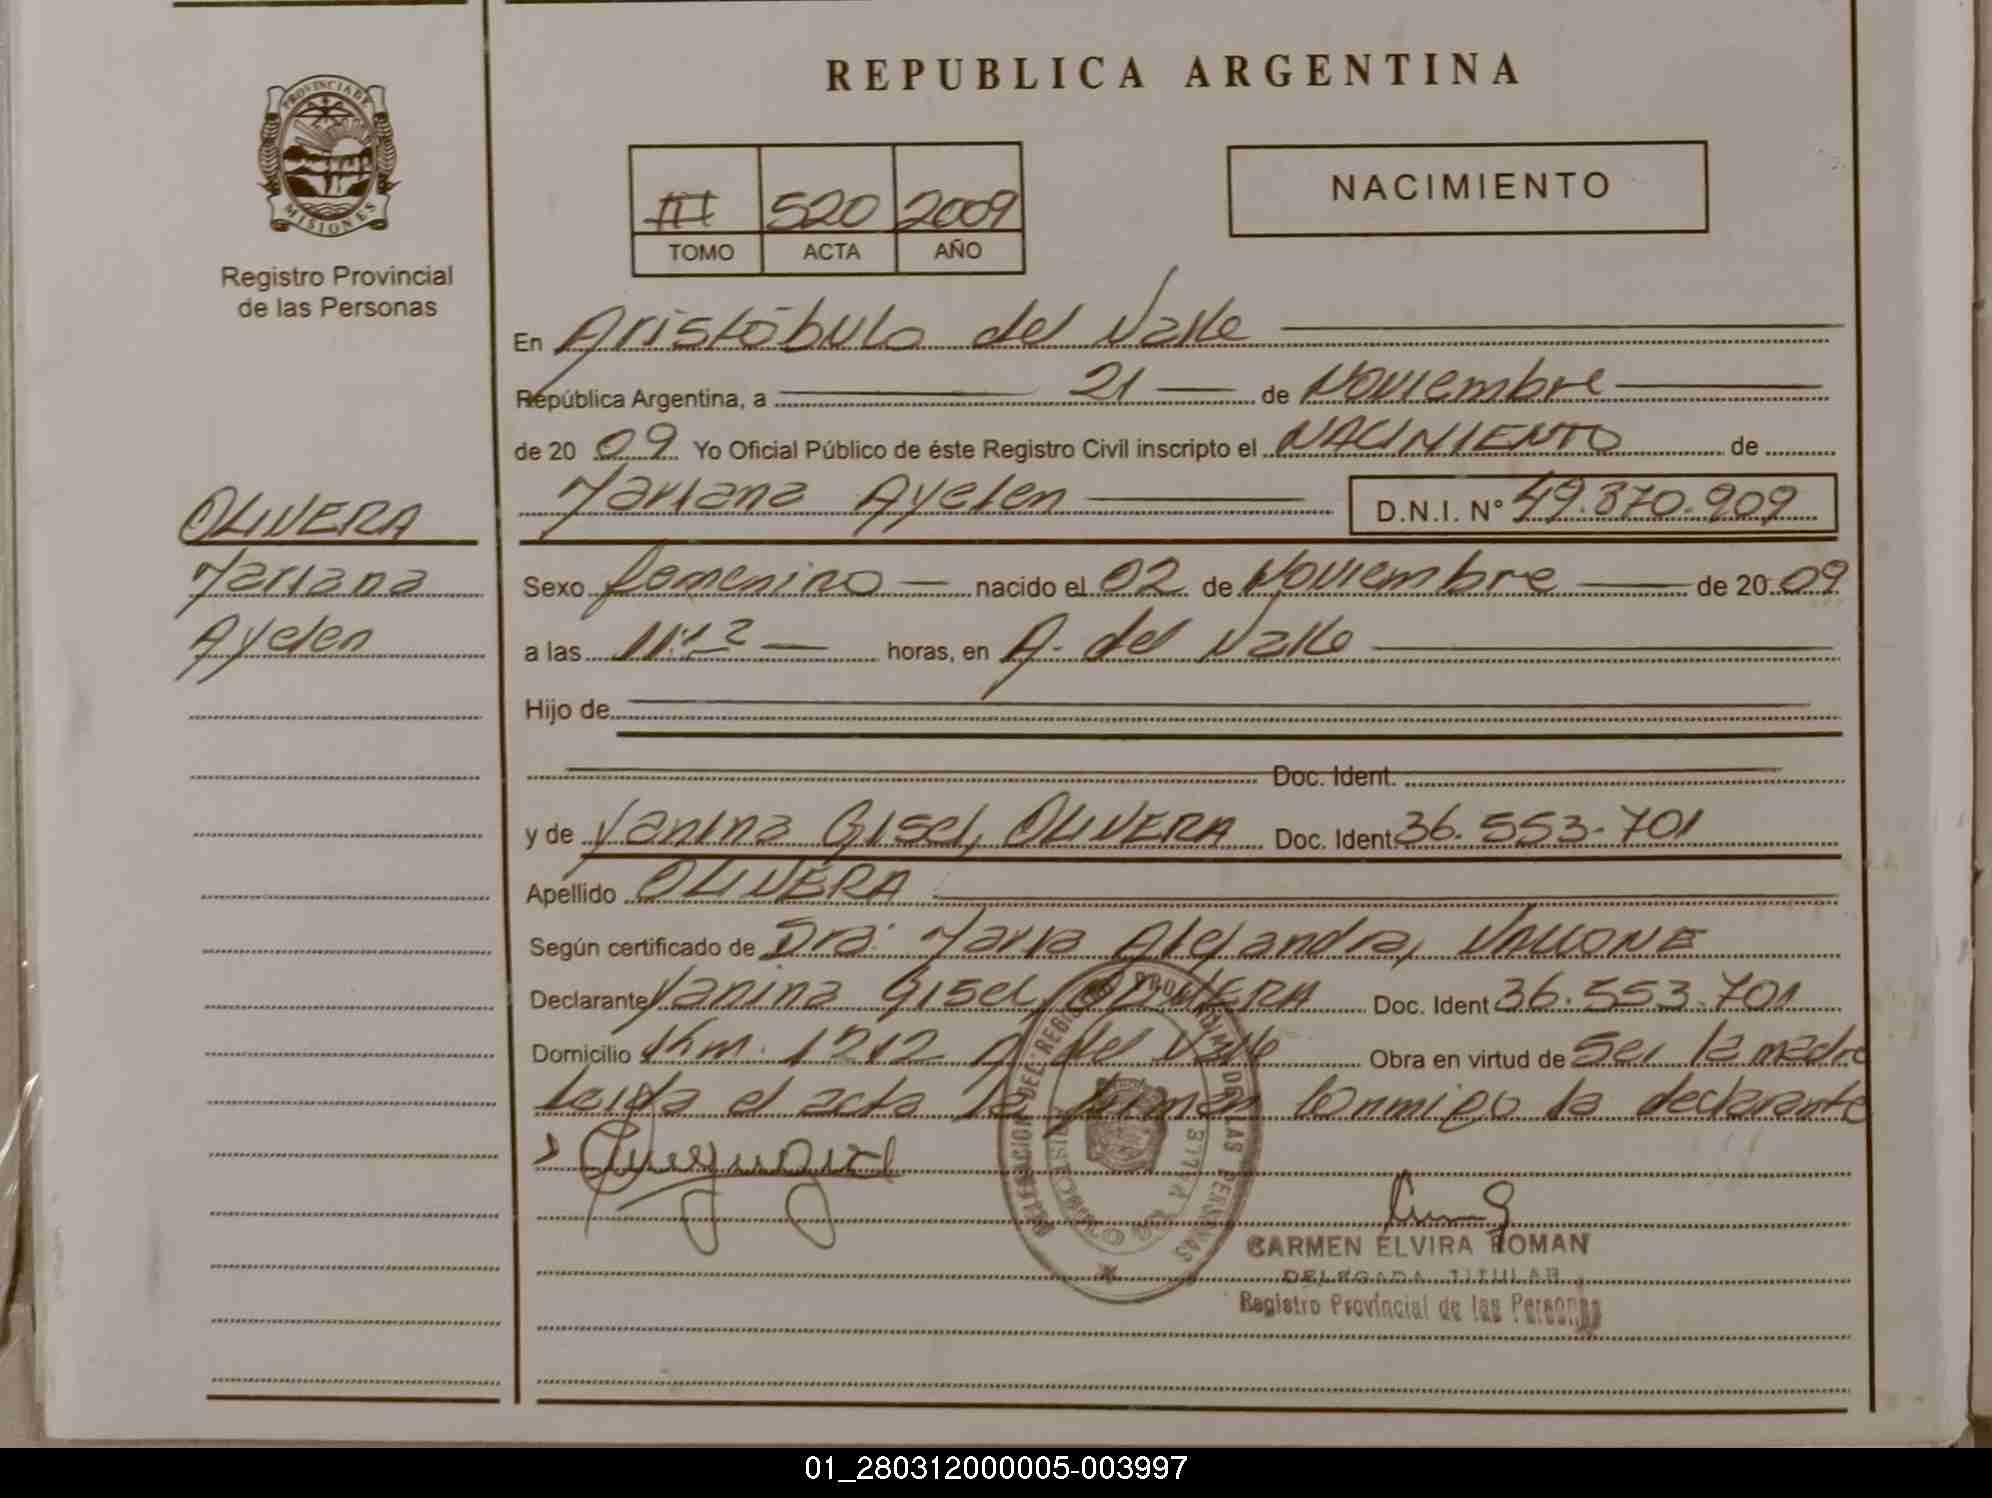 REPUBLICA ARGENTINA
PROVINCIA DE
MISIONES
Registro Provincial
de las Personas
III 520 2009
TOMO ACTA AÑO
NACIMIENTO
En Aristóbulo del Valle
República Argentina, a 21 de Noviembre
de 20 09 Yo Oficial Público de éste Registro Civil inscripto el NACIMIENTO de
Mariana Ayelen D.N.I. Nº 49.870.909
OLIVERA
Mariana
Ayelen
Sexo femenino nacido el 02 de Noviembre de 20 09
a las horas, en A. del Valle
Hijo de
Doc. Ident.
y de Yanina Gisel, OLIVERA Doc. Ident 36.553.701
Apellido OLIVERA
Según certificado de Dra. Maria Alejandra, VALLONE
Declarante Yanina Gisel, OLIVERA Doc. Ident 36.553.701
Domicilio Km. 1212 A. del Valle Obra en virtud de Ser la madre
Leida el acta la firman Conmigo la declarante
CARMEN ELVIRA ROMAN
DELEGADA TITULAR
Registro Provincial de las Personas
01_280312000005-003997